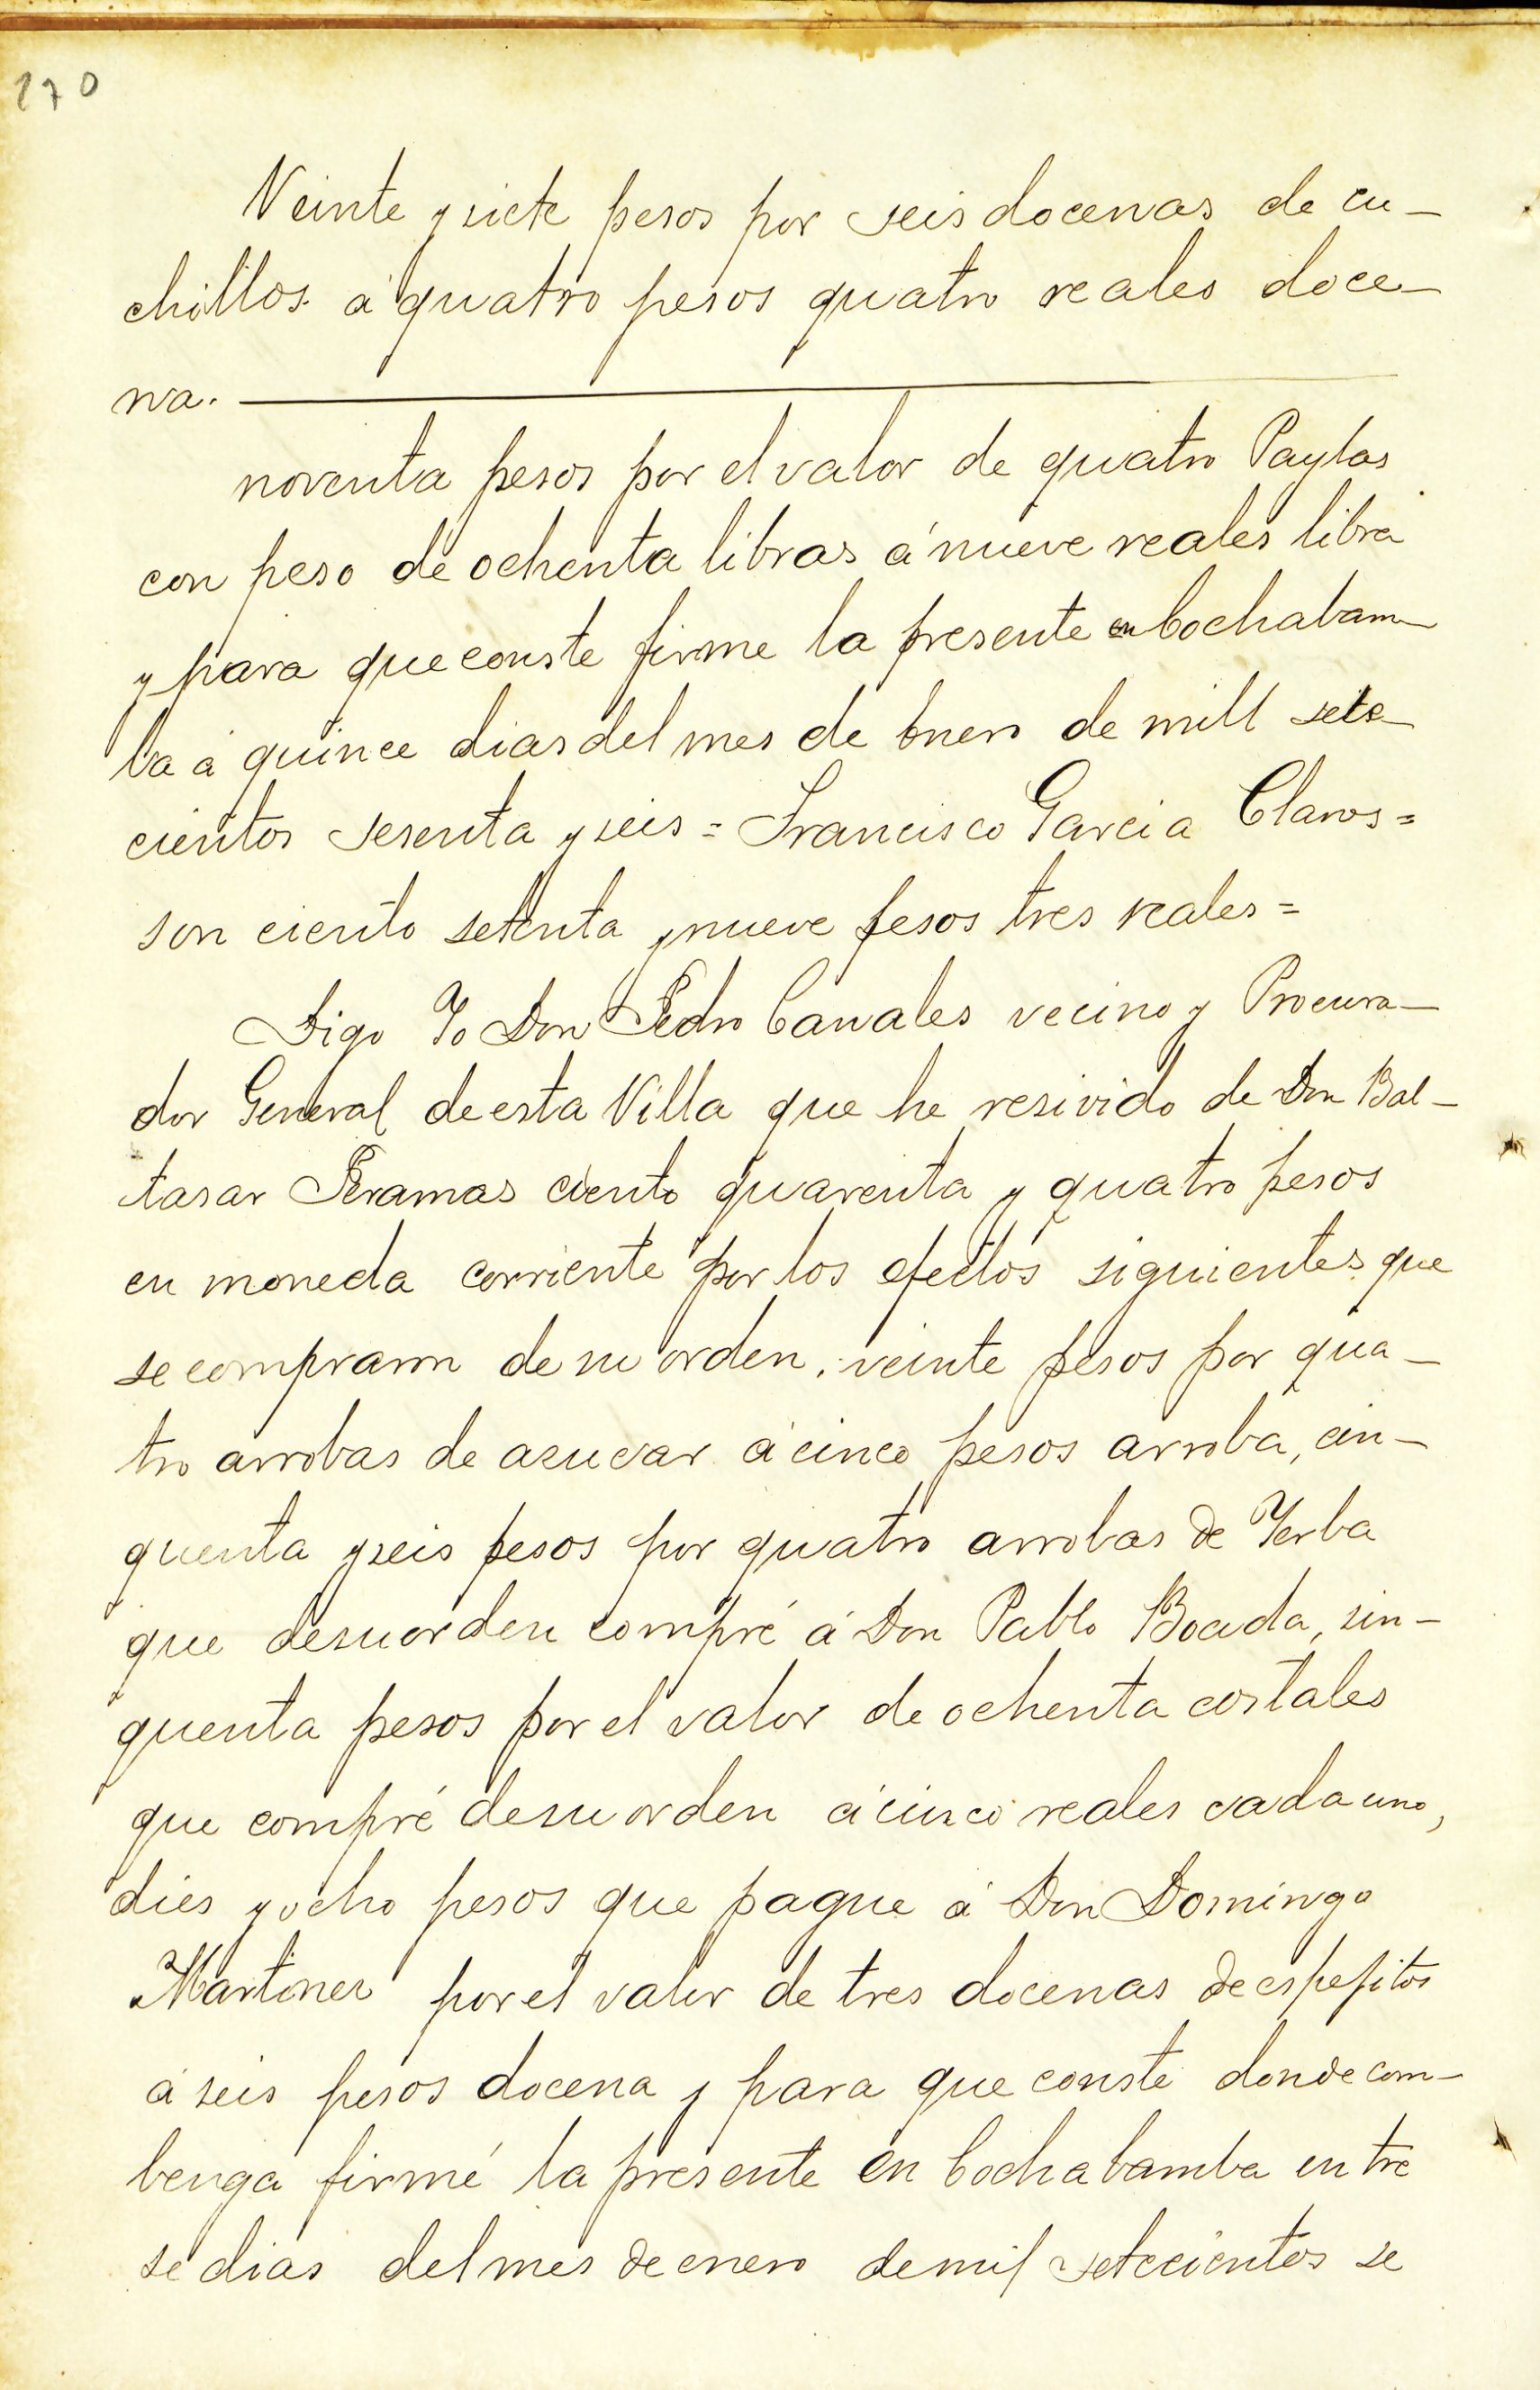 170
Veinte y siete pesos por seis docenas de cu-
chillos á quatro pesos quatro reales doce-
na.
noventa pesos por el valor de quatro Paylas
con peso de ochenta libras á nueve reales libra
y para que conste firme la presente en Cochabam-
ba á quince dias del mes de Enero de mill sete-
cientos sesenta y seis = Francisco Garcia Claros =
son ciento setenta y nueve pesos tres reales =
Digo Yo Don Pedro Canales vecino y Procura-
dor General de esta Villa que he resivido de Don Bal-
tasar Peramas ciento quarenta y quatro pesos
en moneda corriente por los efectos siguientes que
se compraron de su orden. veinte pesos por qua-
tro arrobas de azucar á cinco pesos arroba, cin-
quenta y seis pesos por quatro arrobas de Yerba
que de su orden compré á Don Pablo Boada, sin-
quenta pesos por el valor de ochenta costales
que compré de su orden á cinco reales cada uno,
dies y ocho pesos que pague á Don Domingo
Martinez por el valor de tres docenas de espejitos
á seis pesos docena y para que conste donde com-
benga firmé la presente en Cochabamba en tre
se dias del mes de enero de mil setecientos se